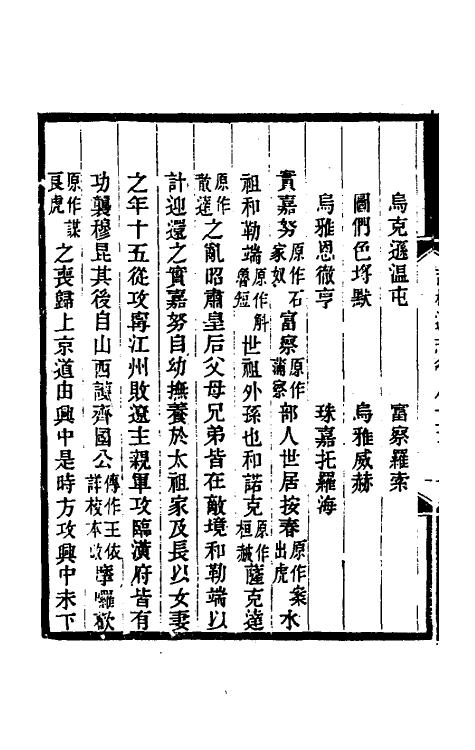 烏克遜温屯　富察羅索
圖們色埒默　烏雅威赫
烏雅恩徹亨　珠嘉托羅海
實嘉努原作石家奴富察原作蒲察部人世居按春原作案出虎水
祖和勒端原作斛魯短世祖外孫也和諾克原作桓赧薩克達
原作散達之亂昭肅皇后父母兄弟皆在敵境和勒端以
計迎還之實嘉努自幼撫養於太祖家及長以女妻
之年十五從攻寧江州敗遼主親軍攻臨潢府皆有
功襲穆昆其後自山西護齊國公傳作王依詳校本改摩囉歡
原作謀良虎之喪歸上京道由興中是時方攻興中未下